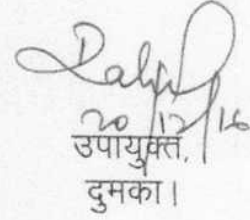 20/12/16
उपायुक्त,
दुमका।